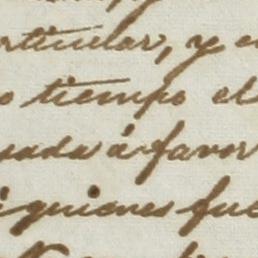 rticular, y e
o tiempo el
sada á favor
quienes fue